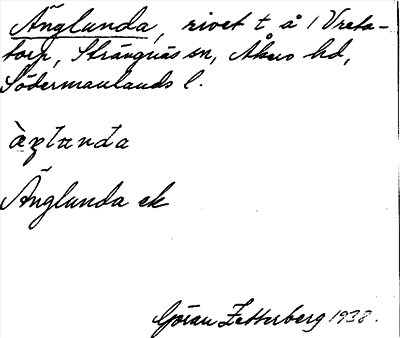 Änglunda, rivet t å 1 Vreta-
torp, Strängnäs sn, Åkers hd,
Södermanlands l.
Änglunda ek
Göran Zetterberg 1938.